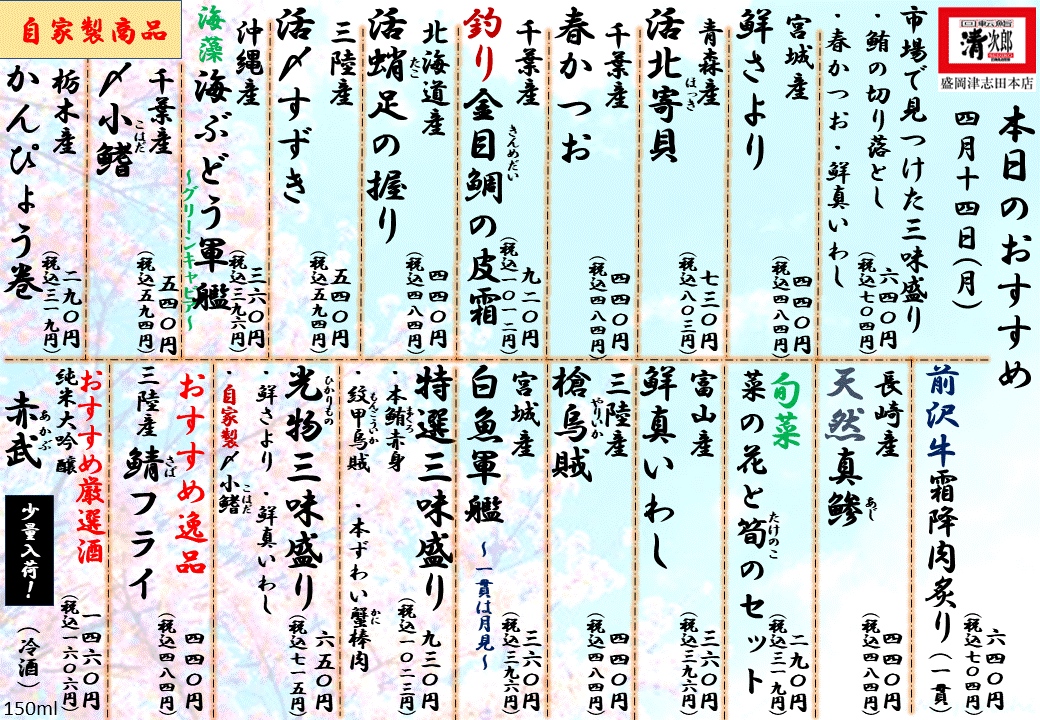 回転鮨
清次郎
盛岡津志田本店
本日のおすすめ
四月十四日(月)
市場で見つけた三味盛り
・鮪の切り落とし
・春かつお・鮮真いわし
六四〇円
(税込七〇四円)
宮城産
鮮さより
四四〇円
(税込四八四円)
青森産
活北寄貝
ほっき
七三〇円
(税込八〇三円)
千葉産
春かつお
四四〇円
(税込四八四円)
千葉産
釣り金目鯛の皮霜
きんめだい
九二〇円
(税込一〇一二円)
北海道産
活蛸足の握り
たこ
四四〇円
(税込四八四円)
三陸産
活〆すずき
五四〇円
(税込五九四円)
沖縄産
海藻 海ぶどう軍艦
~グリーンキャビア~
三六〇円
(税込三九六円)
自家製商品
千葉産
〆小鰭
こはだ
五四〇円
(税込五九四円)
栃木産
かんぴょう巻
二九〇円
(税込三一九円)
前沢牛霜降肉炙り(一貫)
六四〇円
(税込七〇四円)
長崎産
天然真鯵
あじ
四四〇円
(税込四八四円)
旬菜
菜の花と筍のセット
たけのこ
二九〇円
(税込三一九円)
富山産
鮮真いわし
三六〇円
(税込三九六円)
三陸産
槍烏賊
やりいか
四四〇円
(税込四八四円)
宮城産
白魚軍艦
~一貫は月見~
三六〇円
(税込三九六円)
特選三味盛り
・本鮪赤身
まぐろ
・紋甲烏賊
もんごういか
・本ずわい蟹棒肉
かに
九三〇円
(税込一〇二三円)
光物三味盛り
ひかりもの
・鮮さより
・鮮真いわし
・自家製〆小鰭
こはだ
六五〇円
(税込七一五円)
おすすめ逸品
三陸産
鯖フライ
さば
四四〇円
(税込四八四円)
おすすめ厳選酒
純米大吟醸
赤武
あかぶ
少量入荷!
(冷酒)
一四六〇円
(税込一六〇六円)
150ml